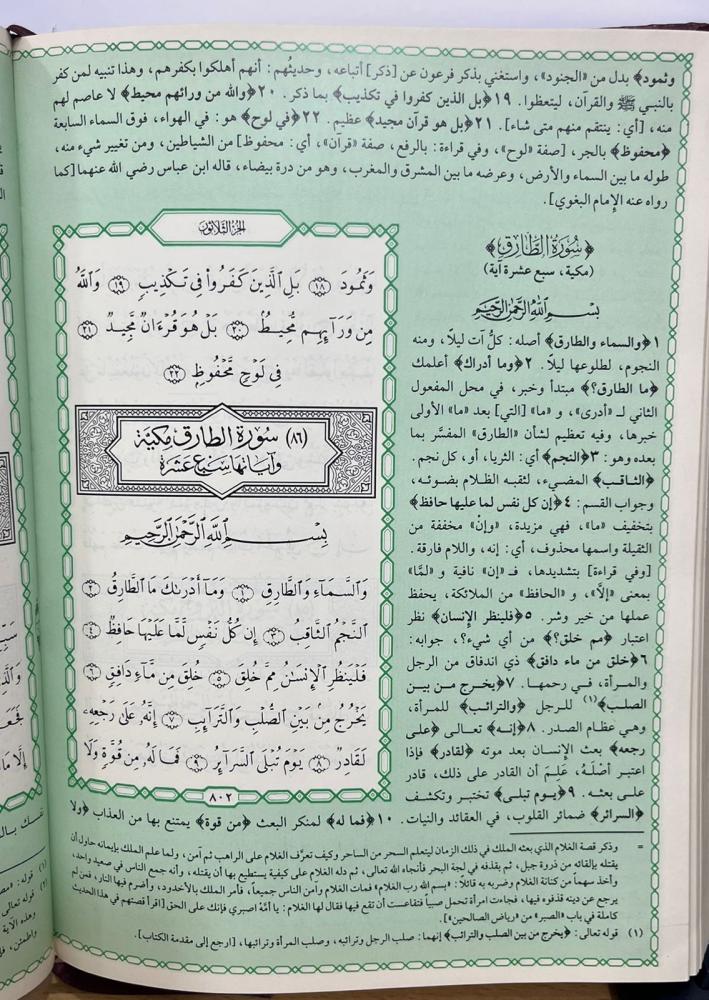 وثمود﴾ بدل من «الجنود»، واستغني بذكر فرعون عن [ذكر] أتباعه، وحديثُهم: أنهم أهلكوا بكفرهم، وهذا تنبيه لمن كفر
بالنبي ﷺ والقرآن، ليتعظوا. ١٩﴿بل الذين كفروا في تكذيب﴾ بما ذكر. ٢٠﴿والله من ورائهم محيط﴾ لا عاصم لهم
منه، [أي: ينتقم منهم متى شاء]. ٢١﴿بل هو قرآن مجيد﴾ عظيم. ٢٢﴿في لوح﴾ هو: في الهواء، فوق السماء السابعة
﴿محفوظ﴾ بالجر، [صفة «لوح»، وفي قراءة: بالرفع، صفة «قرآن»، أي: محفوظ] من الشياطين، ومن تغيير شيء منه،
طوله ما بين السماء والأرض، وعرضه ما بين المشرق والمغرب، وهو من درة بيضاء، قاله ابن عباس رضي الله عنهما [كما
رواه عنه الإمام البغوي].
﴿سُورَة الطَّارِق﴾
(مكية، سبع عشرة آية)
بسم الله الرحمن الرحيم
١﴿والسماء والطارق﴾ أصله: كلُّ آت ليلًا، ومنه
النجوم، لطلوعها ليلًا. ٢﴿وما أدراك﴾ أعلمك
﴿ما الطارق؟﴾ مبتدأ وخبر، في محل المفعول
الثاني لـ «أدرى»، و «ما» [التي] بعد «ما» الأولى
خبرها، وفيه تعظيم لشأن «الطارق» المفسَّر بما
بعده وهو: ٣﴿النجم﴾ أي: الثريا، أو كل نجم.
﴿الثاقب﴾ المضيء، لثقبه الظلام بضوئه،
وجواب القسم: ٤﴿إن كل نفس لما عليها حافظ﴾
بتخفيف «ما»، فهي مزيدة، و«إنْ» مخففة من
الثقيلة واسمها محذوف، أي: إنه، واللام فارقة.
[وفي قراءة] بتشديدها، فـ «إن» نافية و «لمَّا»
بمعنى «إلَّا»، و «الحافظ» من الملائكة، يحفظ
عملها من خير وشر. ٥﴿فلينظر الإنسان﴾ نظر
اعتبار ﴿مم خلق؟﴾ من أي شيء؟، جوابه:
٦﴿خلق من ماء دافق﴾ ذي اندفاق من الرجل
والمرأة، في رحمها. ٧﴿يخرج من بين
الصلب﴾(١) للرجل ﴿والترائب﴾ للمرأة،
وهي عظام الصدر. ٨﴿إنه﴾ تعالى ﴿على
رجعه﴾ بعث الإنسان بعد موته ﴿لقادر﴾ فإذا
اعتبر أصْلَهُ، عَلِمَ أن القادر على ذلك، قادر
على بعثه. ٩﴿يوم تبلى﴾ تختبر وتكشف
﴿السرائر﴾ ضمائر القلوب، في العقائد والنيات. ١٠﴿فما له﴾ لمنكر البعث ﴿من قوة﴾ يمتنع بها من العذاب ﴿ولا
الجزء الثلاثون
وَثَمُودَ ١٨ بَلِ الَّذِينَ كَفَرُوا فِي تَكْذِيبٍ ١٩ وَاللَّهُ
مِن وَرَآئِهِم مُّحِيطٌ ٢٠ بَلْ هُوَ قُرْءَانٌ مَّجِيدٌ ٢١
فِي لَوْحٍ مَّحْفُوظٍ ٢٢
(٨٦) سُورَة الطارق مكيّة
وآياتها سَبع عَشرَة
بِسْمِ اللَّهِ الرَّحْمَٰنِ الرَّحِيمِ
وَالسَّمَآءِ وَالطَّارِقِ ١ وَمَآ أَدْرَىٰكَ مَا الطَّارِقُ ٢
النَّجْمُ الثَّاقِبُ ٣ إِن كُلُّ نَفْسٍ لَّمَّا عَلَيْهَا حَافِظٌ ٤
فَلْيَنظُرِ الْإِنسَٰنُ مِمَّ خُلِقَ ٥ خُلِقَ مِن مَّآءٍ دَافِقٍ ٦
يَخْرُجُ مِنۢ بَيْنِ الصُّلْبِ وَالتَّرَآئِبِ ٧ إِنَّهُۥ عَلَىٰ رَجْعِهِۦ
لَقَادِرٌ ٨ يَوْمَ تُبْلَى السَّرَآئِرُ ٩ فَمَا لَهُۥ مِن قُوَّةٍ وَلَا
٨٠٢
= وذكر قصة الغلام الذي بعثه الملك في ذلك الزمان ليتعلم السحر من الساحر وكيف تعرَّف الغلام على الراهب ثم آمن، ولما علم الملك بإيمانه حاول أن
يقتله بإلقائه من ذروة جبل، ثم بقذفه في لجة البحر فأنجاه الله تعالى، ثم دله الغلام على كيفية يستطيع بها أن يقتله، وأنه جمع الناس في صعيد واحد،
وأخذ سهماً من كنانة الغلام وضربه به قائلاً: «بسم الله رب الغلام» فمات الغلام وآمن الناس جميعاً، فأمر الملك بالأخدود، وأضرم فيها النار، فمن لم
يرجع عن دينه قذفوه فيها، فجاءت امرأة تحمل صبياً فتقاعست أن تقع فيها فقال لها الغلام: يا أمَّهْ اصبري فإنك على الحق [اقرأ قصتهم في هذا الحديث
كاملة في باب «الصبر» من «رياض الصالحين»].
(١) قوله تعالى: ﴿يخرج من بين الصلب والترائب﴾ إنهما: صلب الرجل وترائبه، وصلب المرأة وترائبها، [ارجع إلى مقدمة الكتاب].